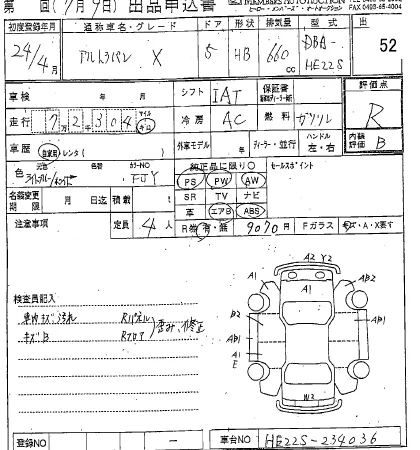 第 回(7月9日) 出品申込書
MEMBERS AUTO AUCTION
FAX 0493-65-4004
初度登録年月 通称車名・グレード ドア 形状 排気量 型式 出品
24/4 アルトラパン X 5 HB 660cc DBA-HE22S 52
車検 年 月 シフト IAT 保証書 評価点
走行 7万2千304 マイル キロ 冷房 AC 燃料 ガソリン R
車歴 自家用 レンタ( ) 外車モデル 年 ディーラー・並行 ハンドル 左・右 内装評価 B
色 元色 色替 カラーNO FJY 純正品に限り○ セールスポイント
PS PW AW
名義変更期限 月 日迄 積載 t SR TV ナビ
革 エアB ABS
注意事項 定員 4人 R券 有・無 9070円 Fガラス キズ・A・X要す
A2 Y2
A1 A1 AB2
検査員記入
車内キズ汚れ Rパネル
キズB Rフロア 歪み、修正
B2
AB1 AB1
A1 A1
E
W2
登録NO ー 車台NO HE22S-234036